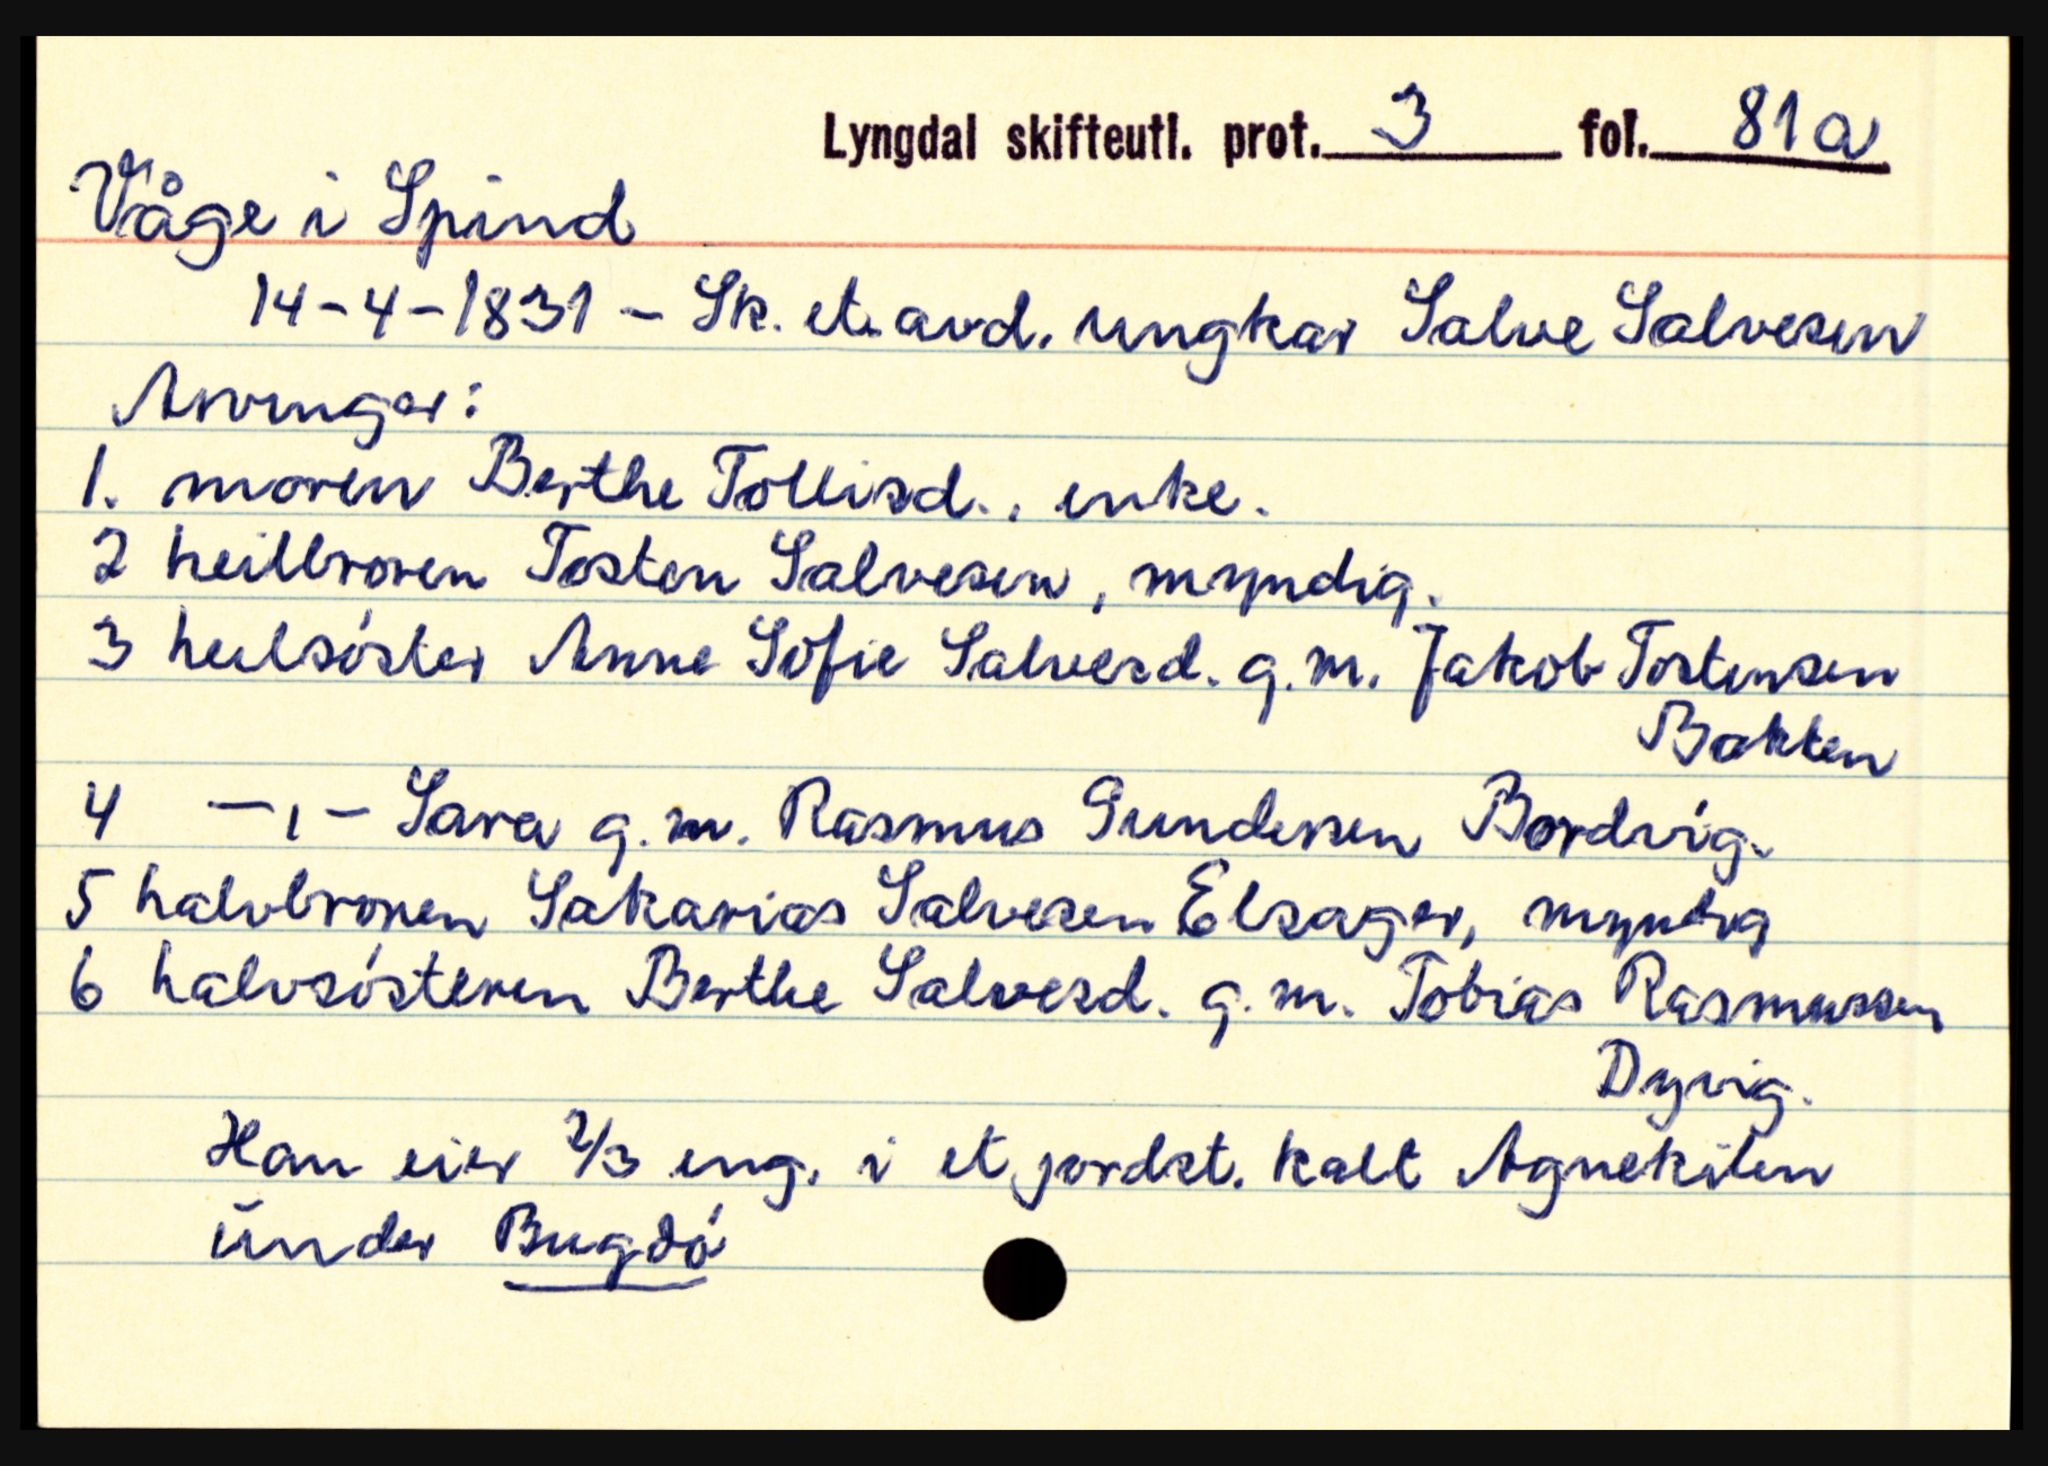 Lyngdal skifteutl. prot. 3 fol. 81a
Våge i Spind
14-4-1831 - Sk. et. avd. ungkar Salve Salvesen
Arvinger:
1. moren Berthe Tollisd., enke.
2 heilbroren Tosten Salvesen, myndig.
3 heilsøster Anne Sofie Salvesd. g.m. Jakob Tostensen
Bakken
4 -,- Sara g.m. Rasmus Gundersen Bordvig.
5 halvbroren Sakarias Salvesen Elsager, myndig
6 halvsøsteren Berthe Salvesd. g.m. Tobias Rasmussen
Dyvig.
Han eier 2/3 eng. i et jordst. kalt Agnekilen
under Bugdø